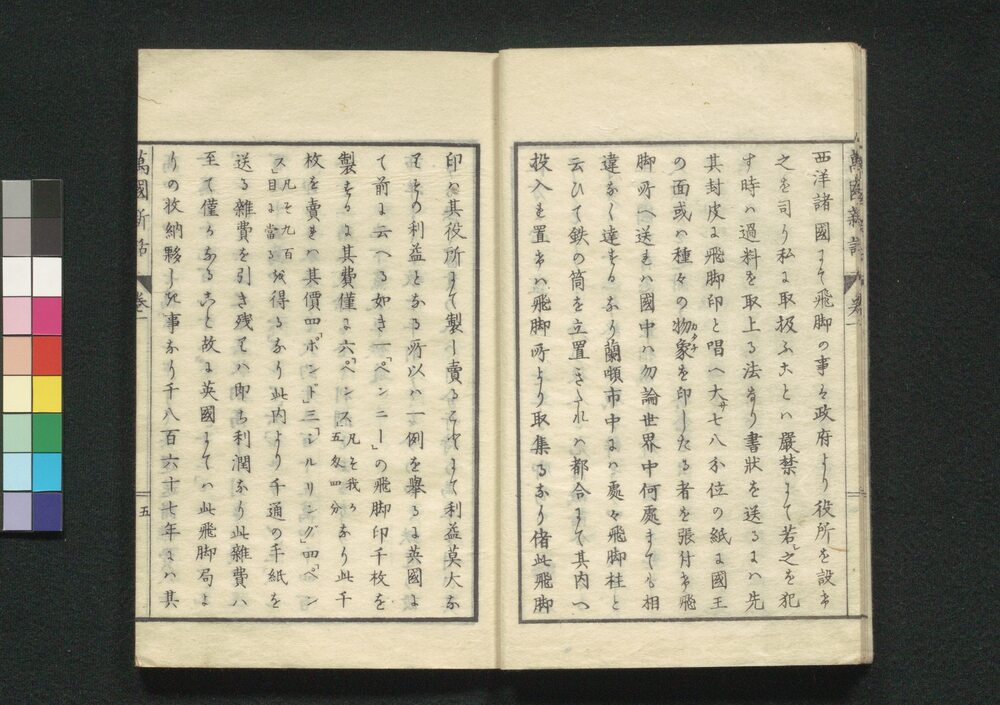 萬國新話 卷一
西洋諸國にて飛脚の事ハ政府より役所を設け
之を司り私に取扱ふことハ嚴禁にて若し之を犯
す時ハ過料を取上る法なり書狀を送るにハ先
其封皮に飛脚印と唱へ大サ七八分位の紙に國王
の面或ハ種々の物象カタチを印したる者を張付け飛
脚所へ送れハ國中ハ勿論世界中何處までも相
違なく達するなり蘭頓市中にハ處々飛脚柱と
云ひて鉄の筒を立置きたれハ都合にて其内へ
投入れ置けハ飛脚所より取集るなり偖此飛脚
印ハ其役所にて製し賣ることにて利益莫大な
り其利益となる所以ハ一例を舉るに英國に
て前に云へる如き一「ペンニー」の飛脚印千枚を
製するに其費僅に六「ペンス」凡そ我カ五匁四分なり此千
枚を賣れハ其價四「ポンド」三「シルリング」四「ペン
ス」凡そ九百目に當るを得るなり此内より千通の手紙を
送る雜費を引き殘れハ即ち利潤なり此雜費ハ
至て僅かなること故に英國にてハ此飛脚局よ
りの收納夥しき事なり千八百六十七年にハ其
萬國新話 卷一 五